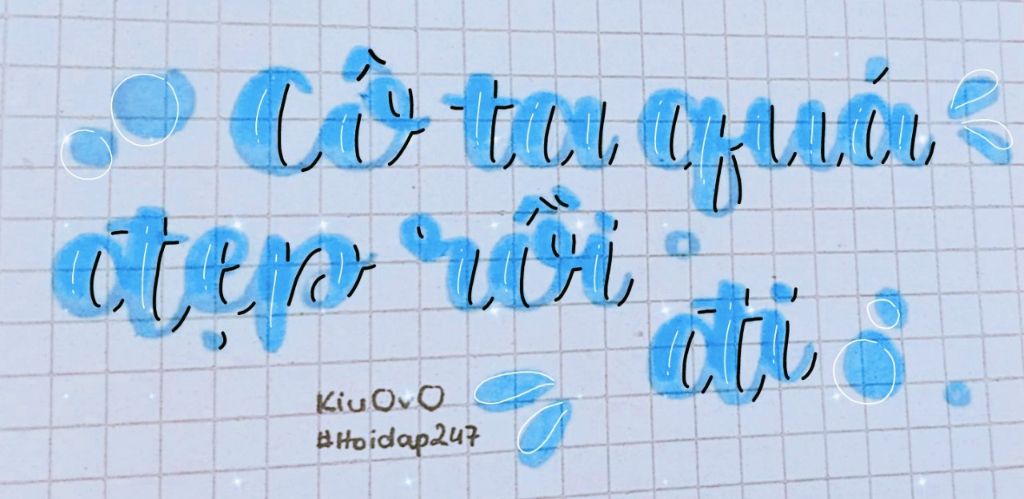 Cô ta quá
đẹp rồi
đi
KiuOvO
#Hoidap247